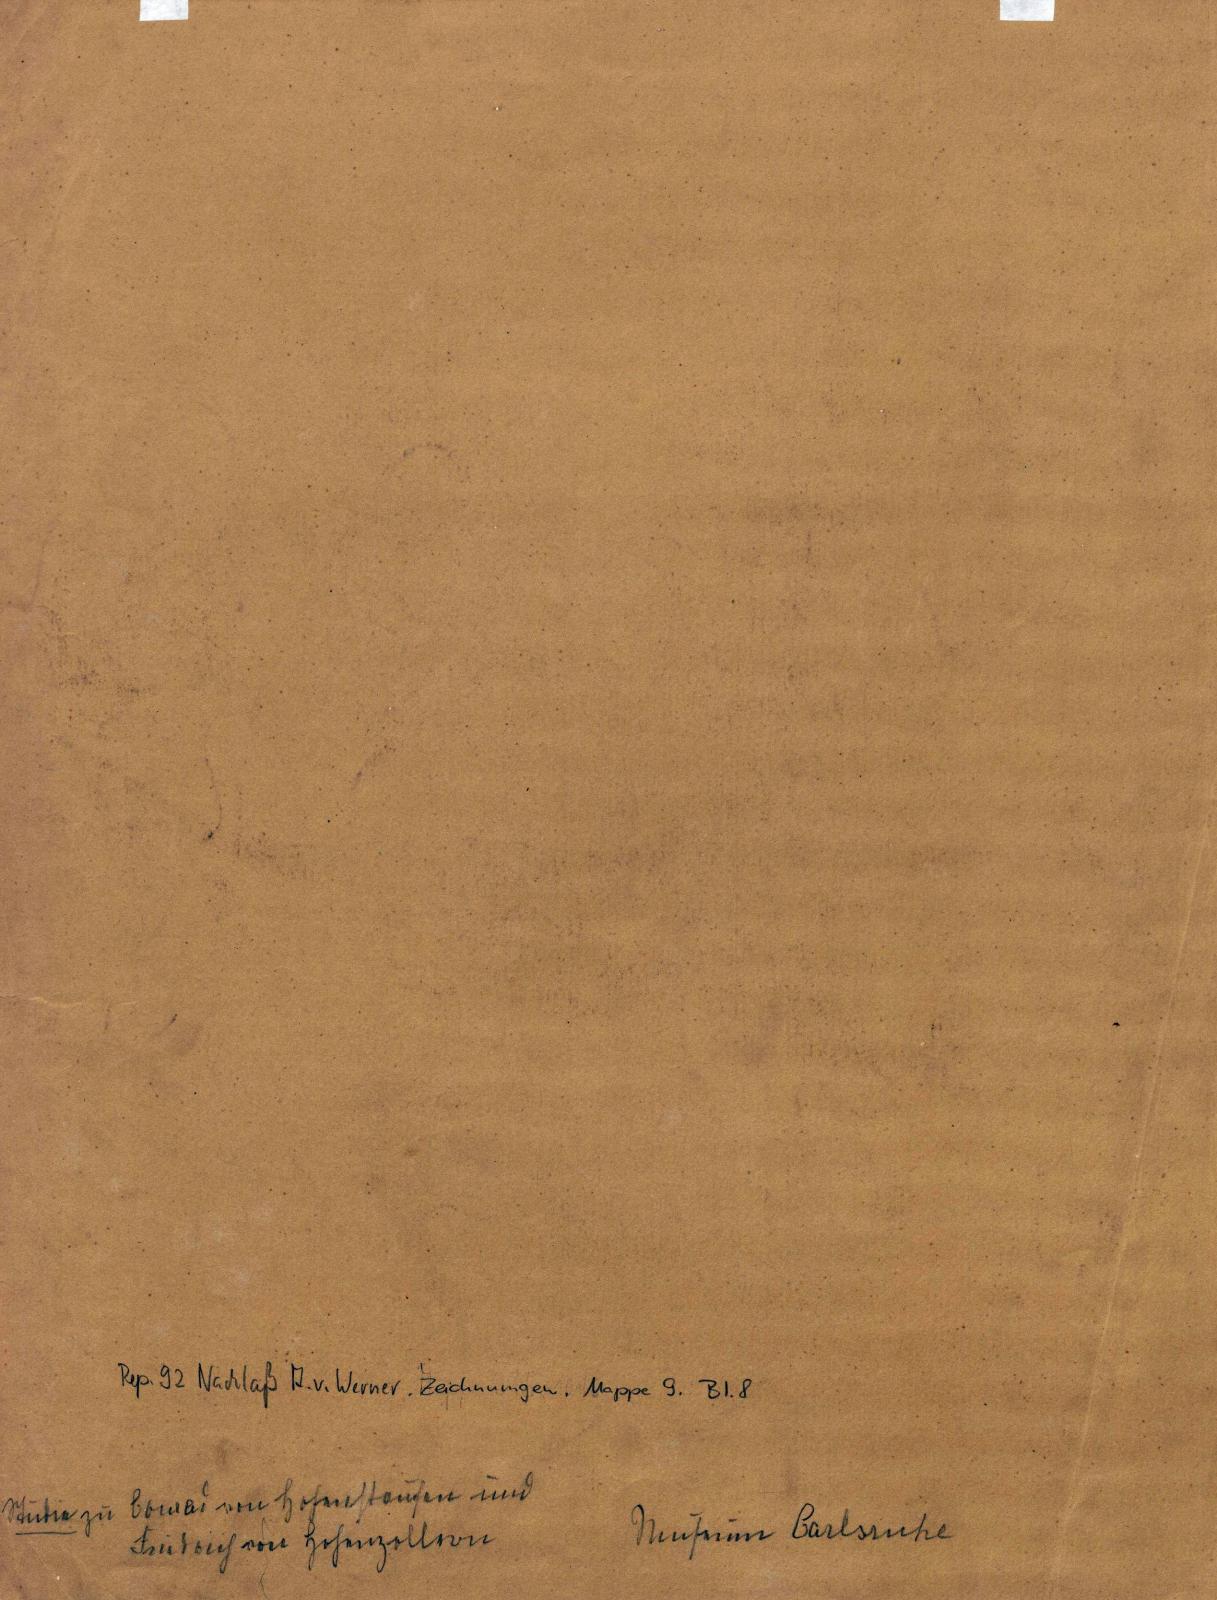 Rep. 92 Nachlaß A. v. Werner. Zeichnungen. Mappe 9. Bl. 8
Studie zu Conrad von Hohenstaufen und
Friedrich von Hohenzollern
Museum Carlsruhe